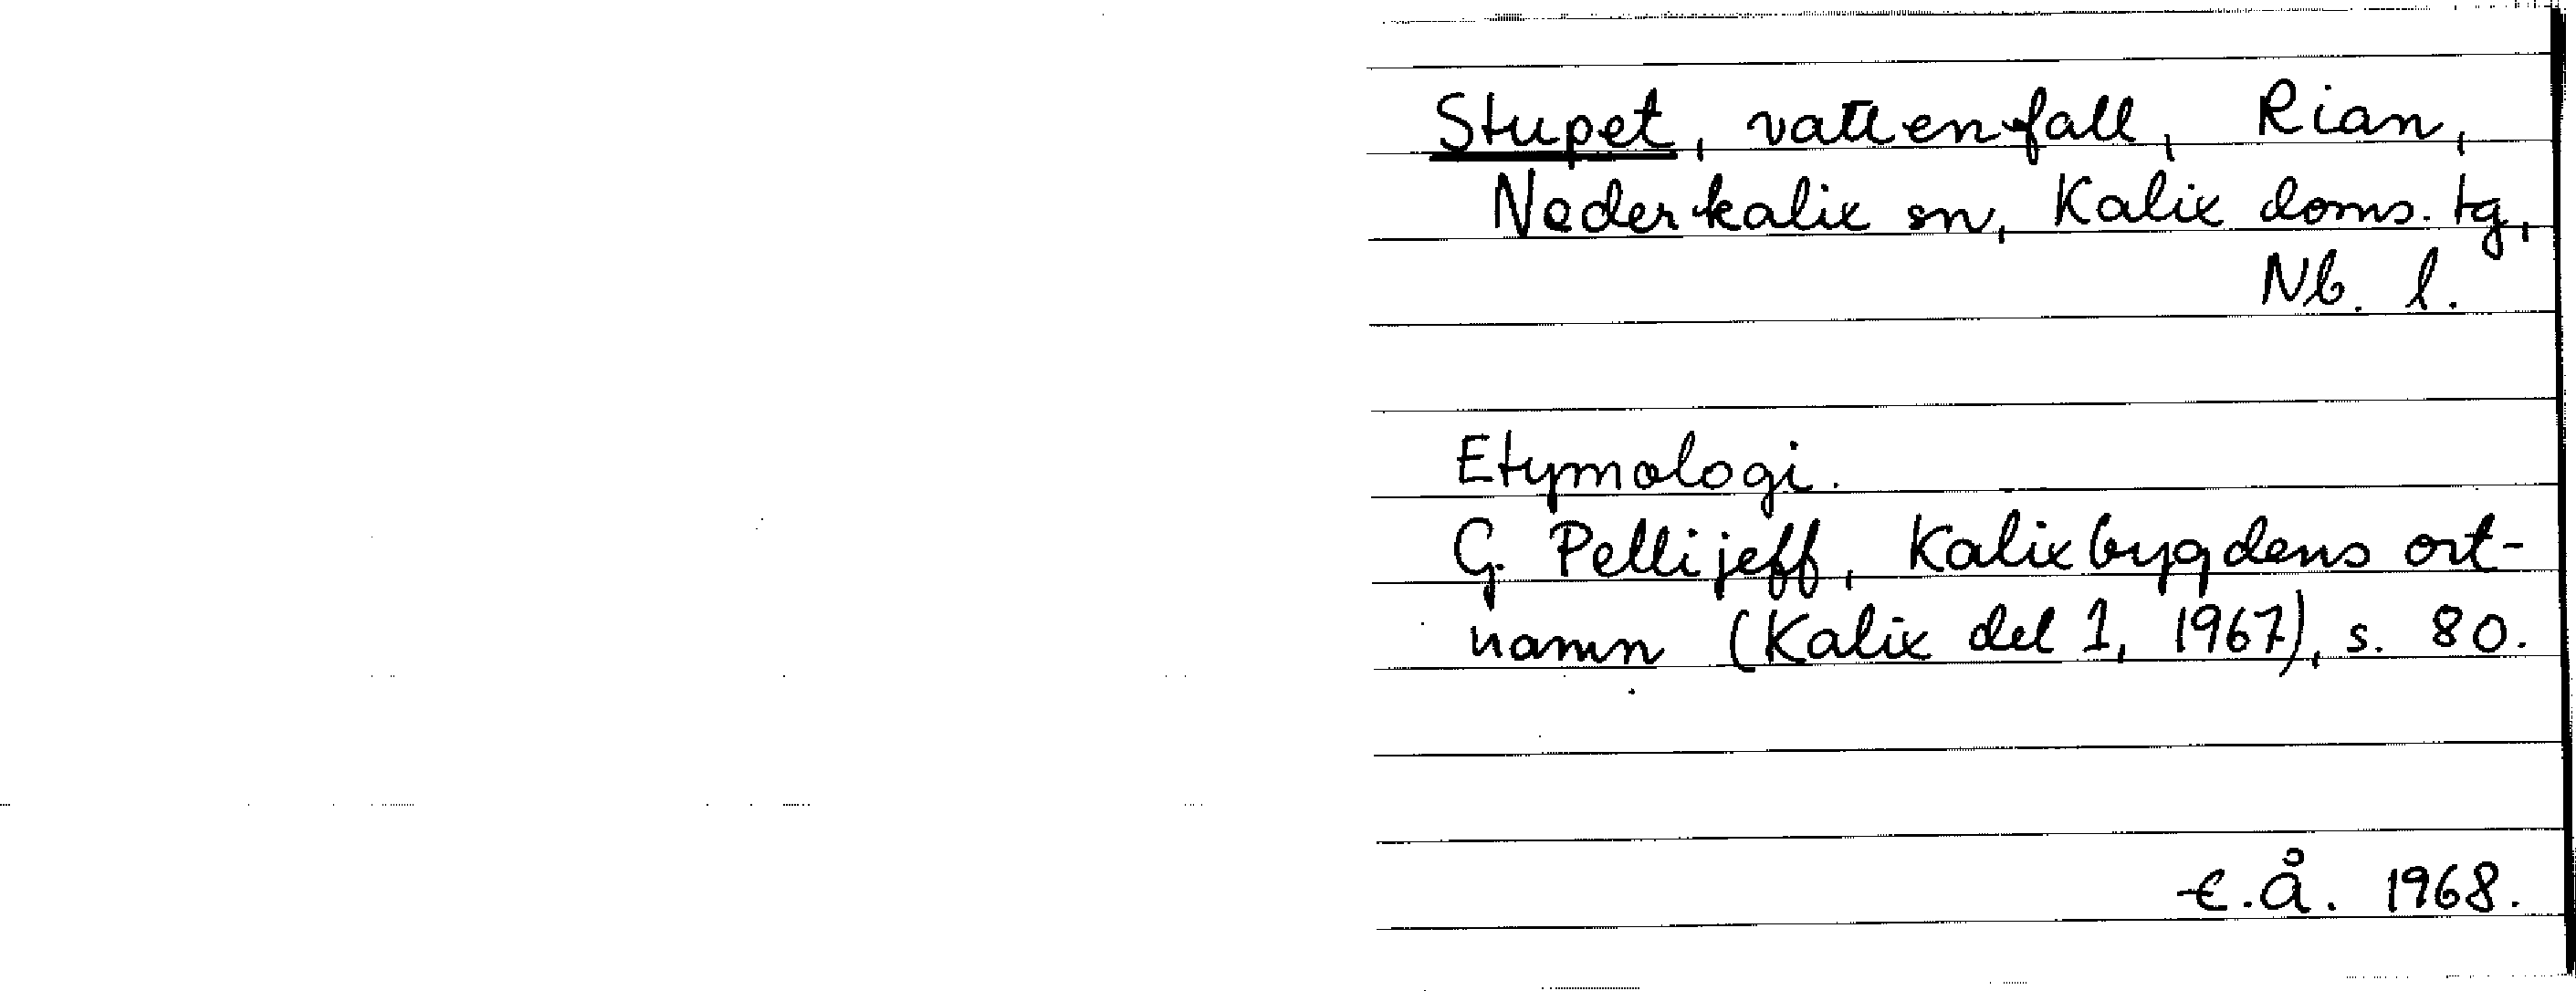 Stupet, vattenfall, Rian,
Nederkalix sn, Kalix doms. tg,
Nb. l.
Etymologi.
G. Pellijeff, Kalixbygdens ort-
namn (Kalix del 1, 1967), s. 80.
E.Å. 1968.